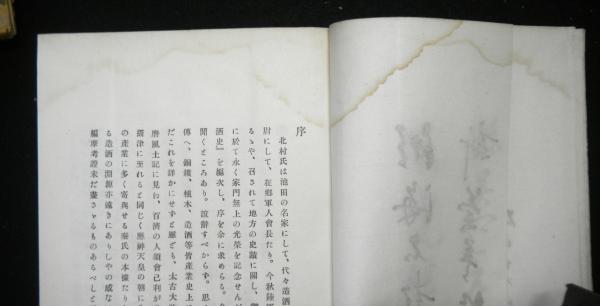 序
北村氏は池田の名家にして、代々造酒
尉にして、在鄕軍人會長たり。今秋陸軍
るゝや、召されて地方の史蹟に關し、
に於て永く家門無上の光榮を記念せんが
酒史』を編次し、序を余に求めらる。
聞くところあり。誼辭すべからず。思
傳へ、銅鐵、植木、造酒等皆産業史上
だこれを詳かにせずと雖ども、太古大
磨風土記に見ね、百濟の人須會己利が
攝津に至れると同じく應神天皇の朝に
の産業に多く寄與せる秦氏の本據たり
る造酒の淵源亦遠きにありしやの感な
編摩考證未だ盡さゞるものあるべしと